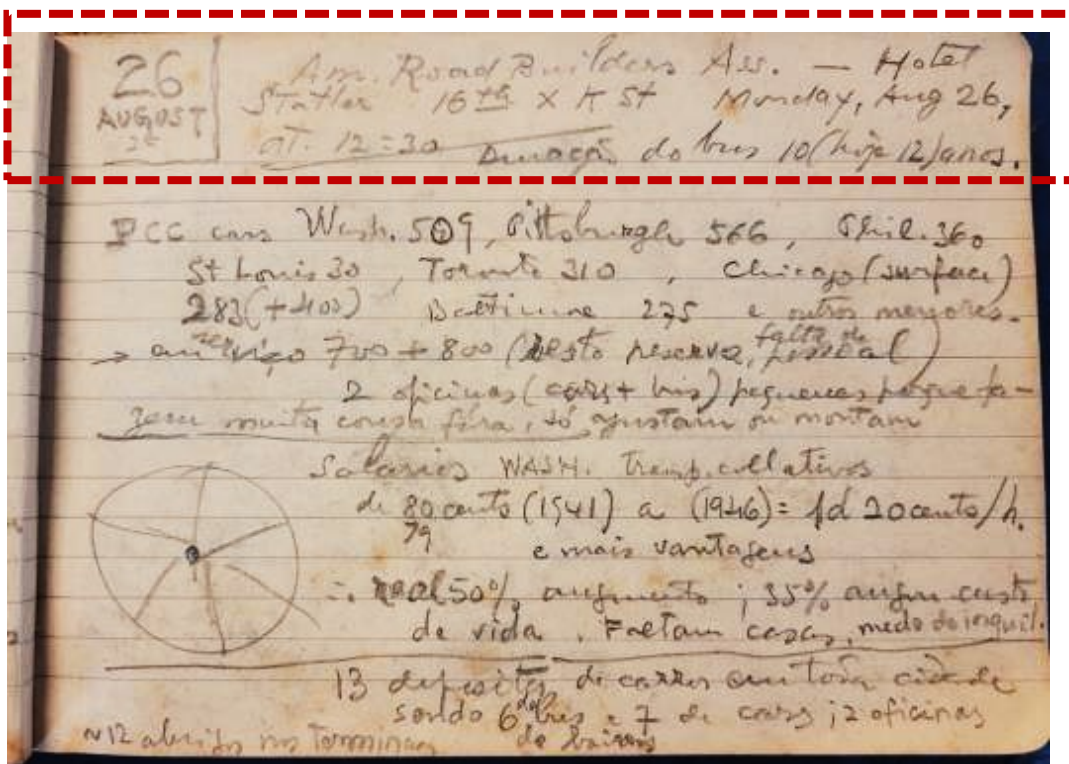 26
AUGUST
Am. Road Builders Ass. — Hotel
Statler 16th x K St Monday, Aug 26,
at. 12=30 Duração do bus 10 (hoje 12) anos.
PCC cars Wash. 509, Pittsburgh 566, Phil. 360
St Louis 30, Toronto 310, Chicago (surface)
283 (+400) Baltimore 275 e outros menores.
→ em serviço 700 + 800 (resto reserva, falta de pessoal)
2 oficinas (cars + bus) pequenas porque fa-
zem muita cousa fóra, só ajustam ou montam
Salarios WASH. transp. collativos
de 80 cents (1941) a (1946) = 1d 20 cents/h.
79
e mais vantagens
∴ real 50% augmento ; 35% augm custo
de vida. Faltam casas, medo do inquil.
13 depositos de carros em toda cidade
sendo 6 de bus e 7 de cars ; 2 oficinas
~12 abrigos nos terminaes de bairros